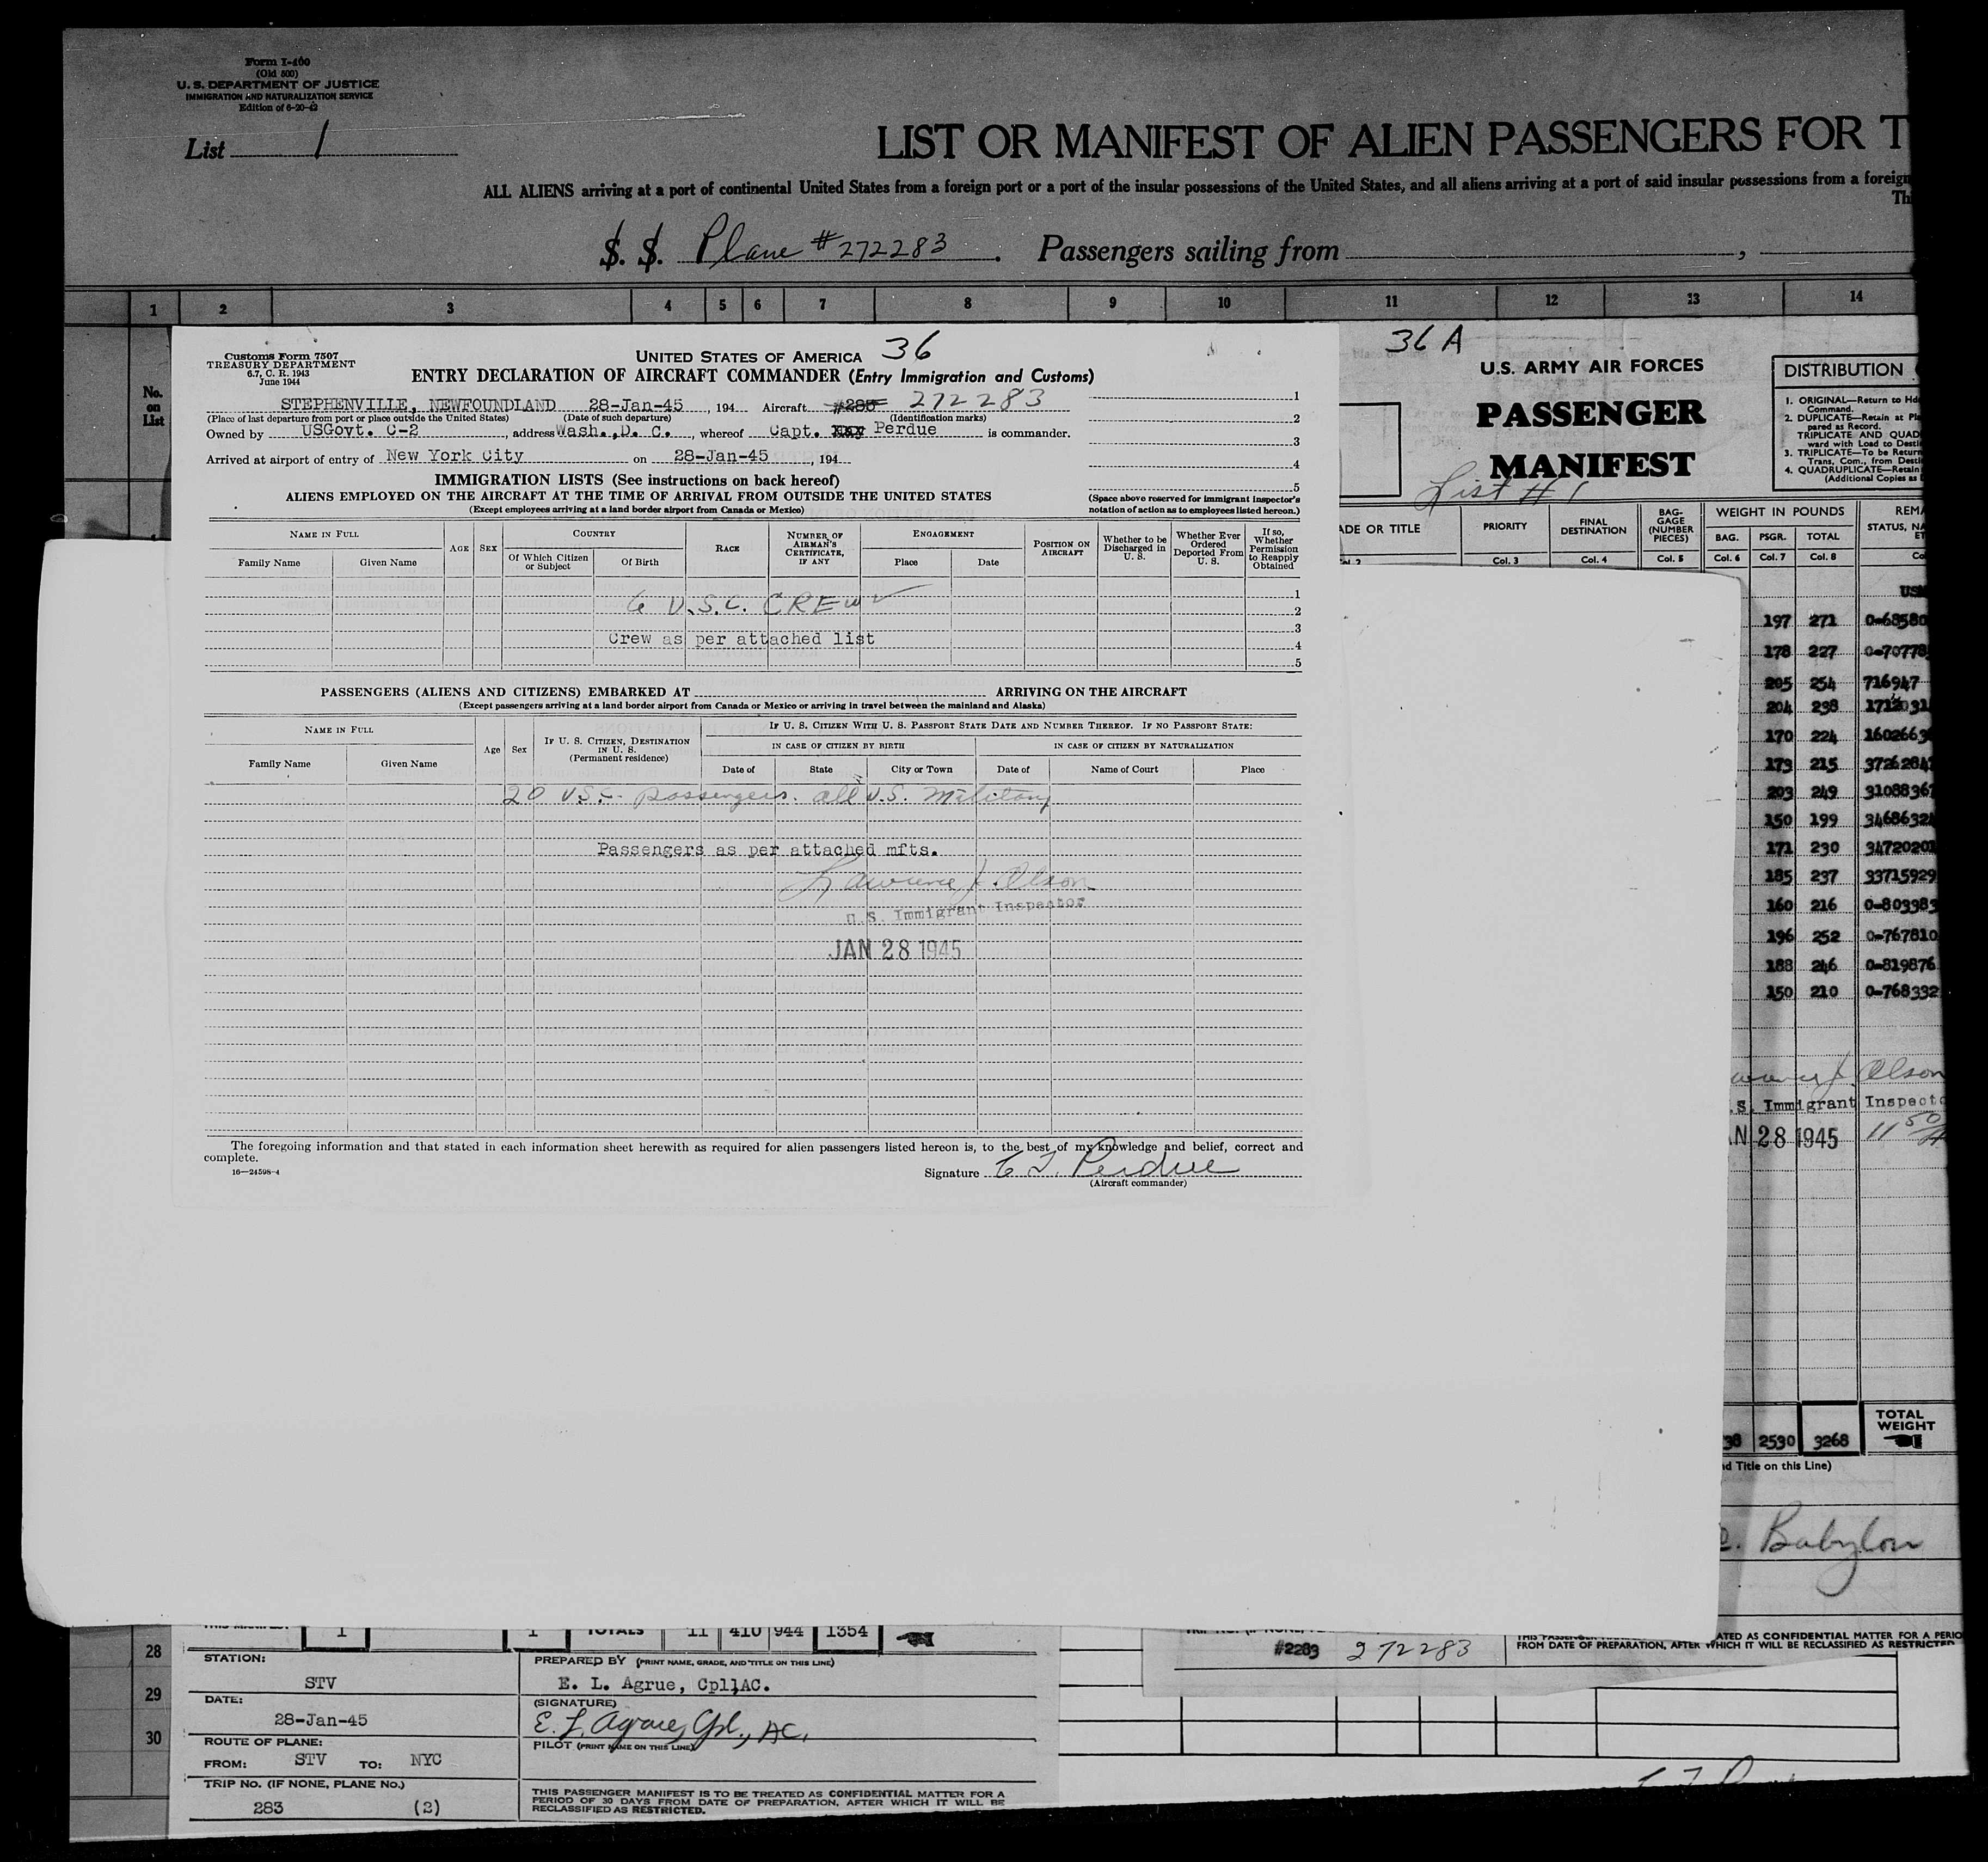 Form I-400
(Old 500)
U. S. DEPARTMENT OF JUSTICE
IMMIGRATION AND NATURALIZATION SERVICE
Edition of 6-20-42
List 1
LIST OR MANIFEST OF ALIEN PASSENGERS FOR T
ALL ALIENS arriving at a port of continental United States from a foreign port or a port of the insular possessions of the United States, and all aliens arriving at a port of said insular possessions from a foreign
Th
S. S. Plane #272283. Passengers sailing from ,
1 2 3 4 5 6 7 8 9 10 11 12 13 14
No. on List
Customs Form 7507
TREASURY DEPARTMENT
6.7, C. R. 1943
June 1944
UNITED STATES OF AMERICA 36
ENTRY DECLARATION OF AIRCRAFT COMMANDER (Entry Immigration and Customs)
STEPHENVILLE, NEWFOUNDLAND 28-Jan-45, 194 Aircraft 272283
(Place of last departure from port or place outside the United States) (Date of such departure) (Identification marks)
Owned by USGovt. C-2, address Wash., D. C., whereof Capt. Perdue is commander.
Arrived at airport of entry of New York City on 28-Jan-45, 194
1
2
3
4
5
IMMIGRATION LISTS (See instructions on back hereof)
ALIENS EMPLOYED ON THE AIRCRAFT AT THE TIME OF ARRIVAL FROM OUTSIDE THE UNITED STATES
(Except employees arriving at a land border airport from Canada or Mexico)
(Space above reserved for immigrant inspector's
notation of action as to employees listed hereon.)
NAME IN FULL
Family Name Given Name
AGE SEX
COUNTRY
Of Which Citizen or Subject Of Birth
RACE
NUMBER OF AIRMAN'S CERTIFICATE, IF ANY
ENGAGEMENT
Place Date
POSITION ON AIRCRAFT
Whether to be Discharged in U. S.
Whether Ever Ordered Deported From U. S.
If so, Whether Permission to Reapply Obtained
1
6 U.S.C. CREW ✓
2
3
Crew as per attached list
4
5
PASSENGERS (ALIENS AND CITIZENS) EMBARKED AT ARRIVING ON THE AIRCRAFT
(Except passengers arriving at a land border airport from Canada or Mexico or arriving in travel between the mainland and Alaska)
NAME IN FULL
Family Name Given Name
Age Sex
IF U. S. CITIZEN, DESTINATION IN U. S.
(Permanent residence)
IF U. S. CITIZEN WITH U. S. PASSPORT STATE DATE AND NUMBER THEREOF. IF NO PASSPORT STATE:
IN CASE OF CITIZEN BY BIRTH IN CASE OF CITIZEN BY NATURALIZATION
Date of State City or Town Date of Name of Court Place
20 USC passengers. all U.S. Military
Passengers as per attached mfts.
Lawrence J. Olson
U.S. Immigrant Inspector
JAN 28 1945
The foregoing information and that stated in each information sheet herewith as required for alien passengers listed hereon is, to the best of my knowledge and belief, correct and
complete.
16—24598-4
Signature C J. Perdue
(Aircraft commander)
36 A
U.S. ARMY AIR FORCES
PASSENGER
MANIFEST
List #1
DISTRIBUTION
1. ORIGINAL—Return to Hd
Command.
2. DUPLICATE—Retain at Pl
pared as Record.
TRIPLICATE AND QUAD
ward with Load to Desti
3. TRIPLICATE—To be Return
Trans, Com., from Desti
4. QUADRUPLICATE—Retain
(Additional Copies as
ADE OR TITLE PRIORITY FINAL DESTINATION BAGGAGE (NUMBER PIECES) WEIGHT IN POUNDS REMA
BAG. PSGR. TOTAL STATUS, NA
Col. 3 Col. 4 Col. 5 Col. 6 Col. 7 Col. 8 Co
197 271 0-68580
178 227 0-70778
205 254 716947
204 238 1712031
170 224 1602663
173 215 3726284
203 249 3108836
150 199 3468632
171 230 3472020
185 237 33715929
160 216 0-803383
196 252 0-767810
188 246 0-819876
150 210 0-768332
Olson
S. Immigrant Inspecto
N 28 1945 11 50
38 2530 3268 TOTAL WEIGHT
d Title on this Line)
Babylon
28
29
30
1 1 TOTALS 11 410 944 1354
STATION:
STV
PREPARED BY (PRINT NAME, GRADE, AND TITLE ON THIS LINE)
E. L. Agrue, Cpl,AC.
DATE:
28-Jan-45
(SIGNATURE)
E. L. Agrue, Cpl., AC.
ROUTE OF PLANE:
FROM: STV TO: NYC
PILOT (PRINT NAME ON THIS LINE)
TRIP No. (IF NONE, PLANE NO.)
283 (2)
THIS PASSENGER MANIFEST IS TO BE TREATED AS CONFIDENTIAL MATTER FOR A
PERIOD OF 30 DAYS FROM DATE OF PREPARATION, AFTER WHICH IT WILL BE
RECLASSIFIED AS RESTRICTED.
#2283 272283
ATED AS CONFIDENTIAL MATTER FOR A PERIO
FROM DATE OF PREPARATION, AFTER WHICH IT WILL BE RECLASSIFIED AS RESTRICTED